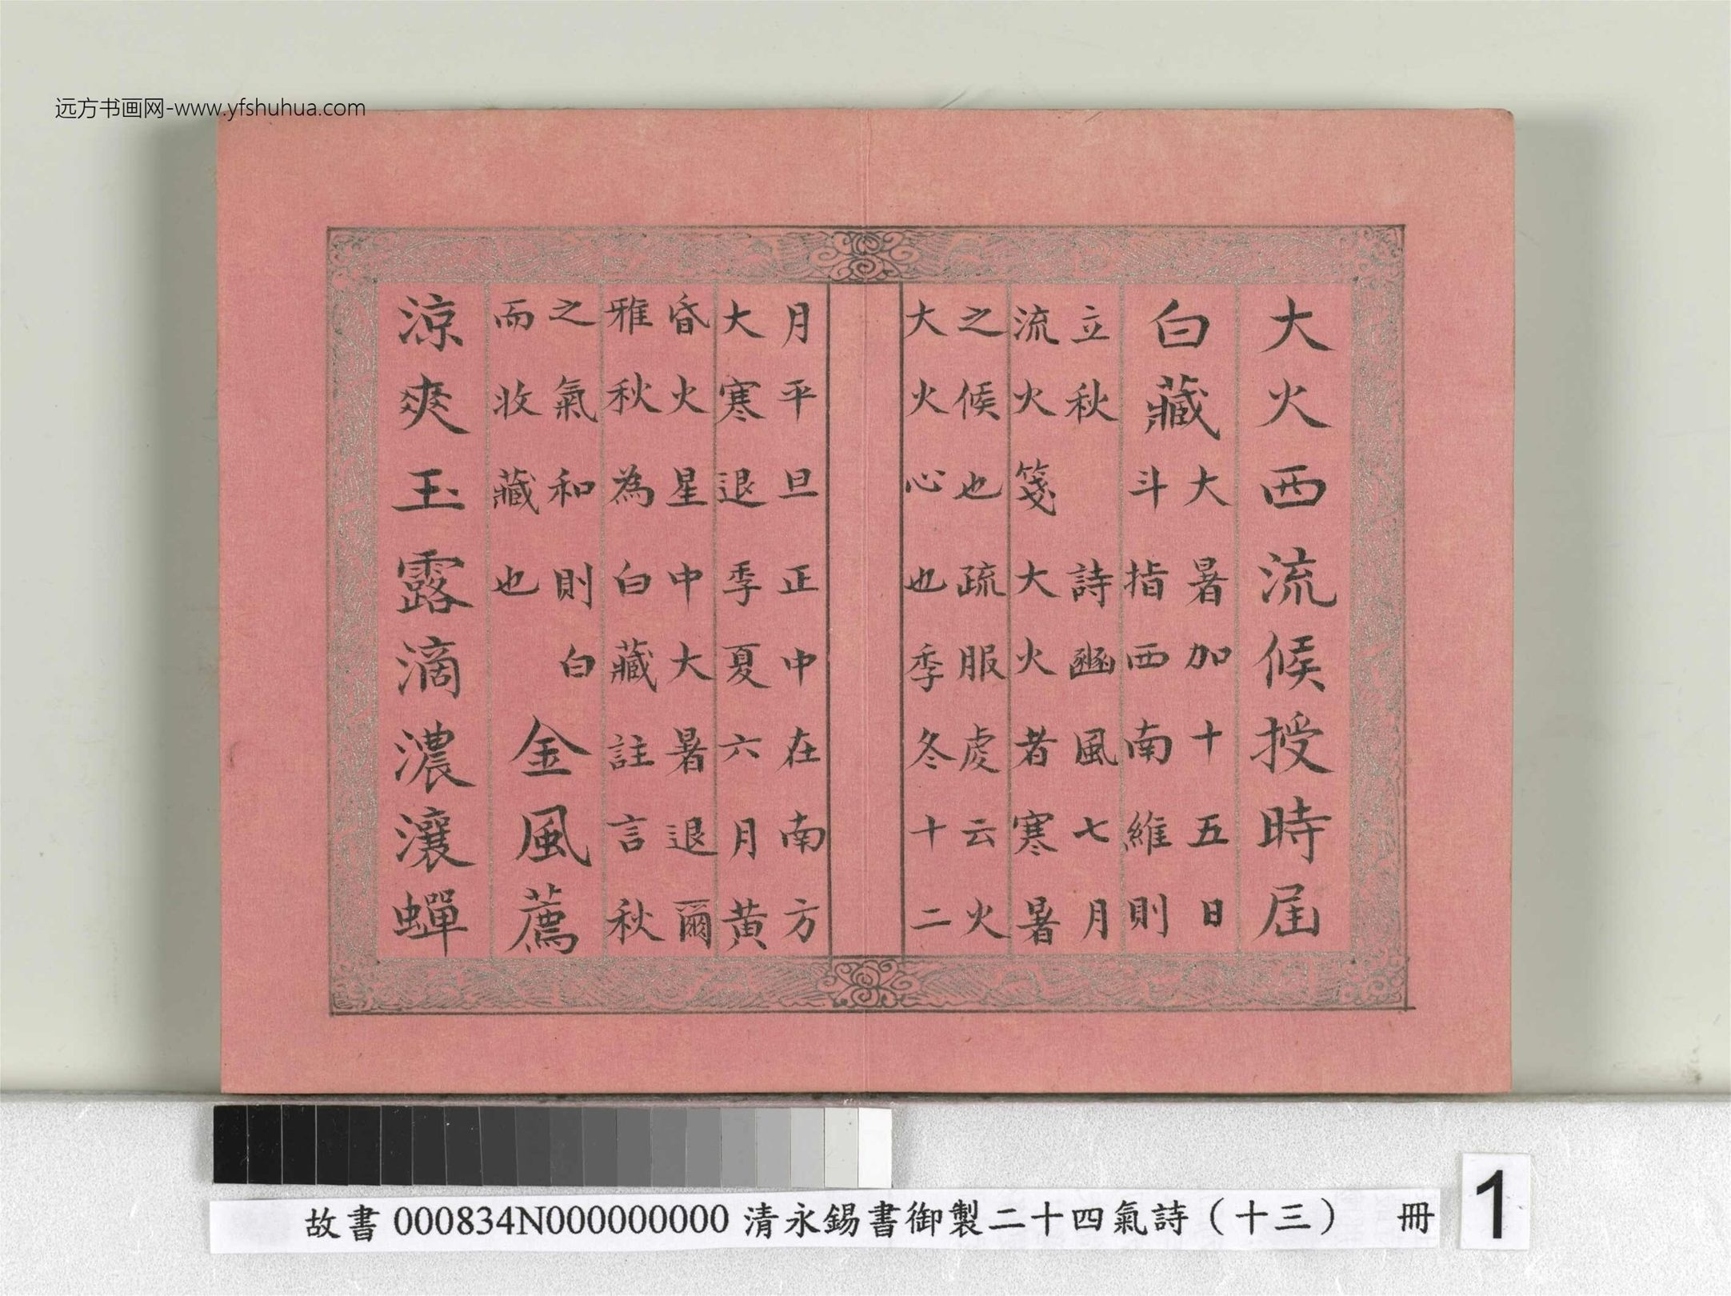 远方书画网-www.yfshuhua.com
大火西流候授時屆
白藏
大暑加十五日
斗指西南維則
立秋 詩豳風七月
流火箋大火者寒暑
之候也疏服虔云火
大火心也季冬十二
月平旦正中在南方
大寒退季夏六月黃
昏火星中大暑退爾
雅秋為白藏註言秋
之氣和則白
而收藏也
金風薦
涼爽玉露滴濃瀼蟬
故書 000834N000000000 清永錫書御製二十四氣詩（十三） 冊
1